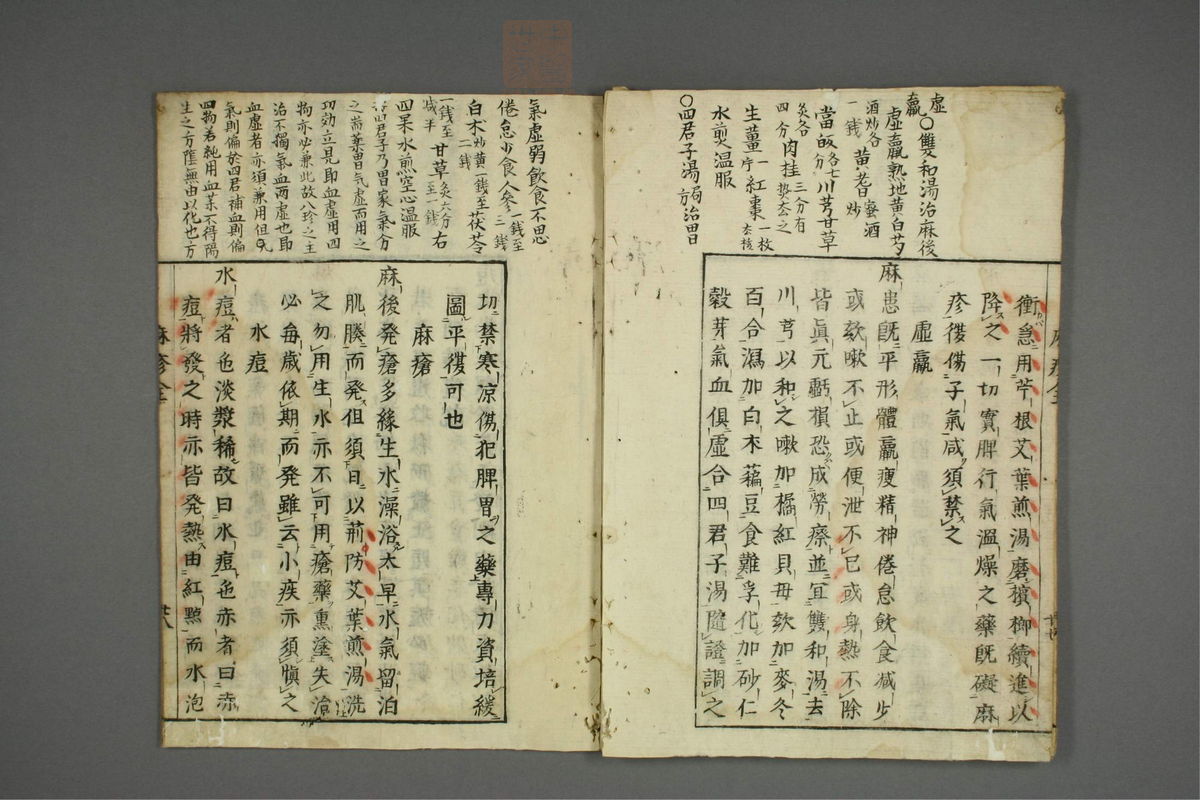 虛羸
○雙和湯治麻後
虛羸熟地黃白芍
酒炒各一錢 黃耆蜜酒炒
當皈各七分川芎甘草
灸各四分肉桂三分有熱去之
生薑一片紅棗一枚去核
水煎温服
○四君子湯局方治胃
衝急用苧根艾葉煎湯磨檳榔續進以
降之一切實脾行氣溫燥之藥既礙麻
疹復傷子氣咸須禁之
虛羸
麻患既平形體羸瘦精神倦怠飲食減少
或欬嗽不止或便泄不已或身熱不除
皆眞元虧損恐成勞瘵並宜雙和湯去
川芎以和之嗽加橘紅貝母欬加麥冬
百合瀉加白朮藊豆食難孚化加砂仁
穀芽氣血俱虛合四君子湯隨證調之
氣虛弱飲食不思
倦怠少食人參一錢至二錢
白朮炒黃一錢至二錢茯苓
一錢至減半甘草灸六分至一錢右
四果水煎空心温服
四君子乃胃家氣分
之耑藥胃氣虛而用之
功効立見即血虛用四
物亦必兼此故八珍之主
治不獨氣血两虛也即
血虛者亦須兼用但
氣則偏於四君補血則偏
四物若純用血藥不得陽
生之方陰無由以化也方
切禁寒涼傷犯脾胃之藥專力資培緩
圖平復可也
麻瘡
麻後発瘡多緣生水澡浴太早水氣留泊
肌腠而発但須日以荊防艾葉煎湯洗
之勿用生水亦不可用瘡藥熏塗失治
必每歳依期而発雖云小疾亦須愼之
水痘
水痘者色淡漿稀故曰水痘色赤者曰赤
痘將發之時亦皆発熱由紅點而水泡
廿八